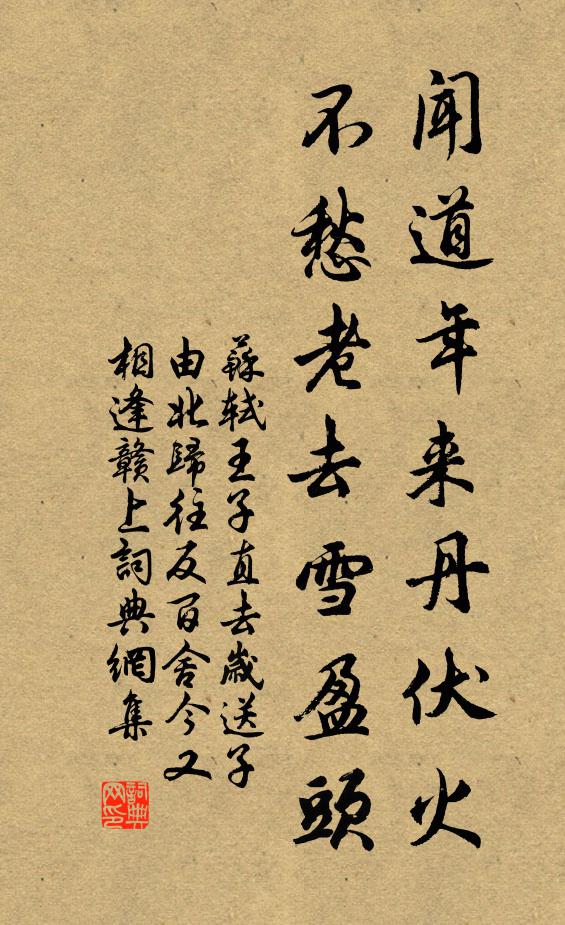 闻道年来丹伏火
不愁老去雪盈頭
蘇軾王子直去歲送子
由北歸往反百舍今又
相逢贛上詞典網集
詞典
网印